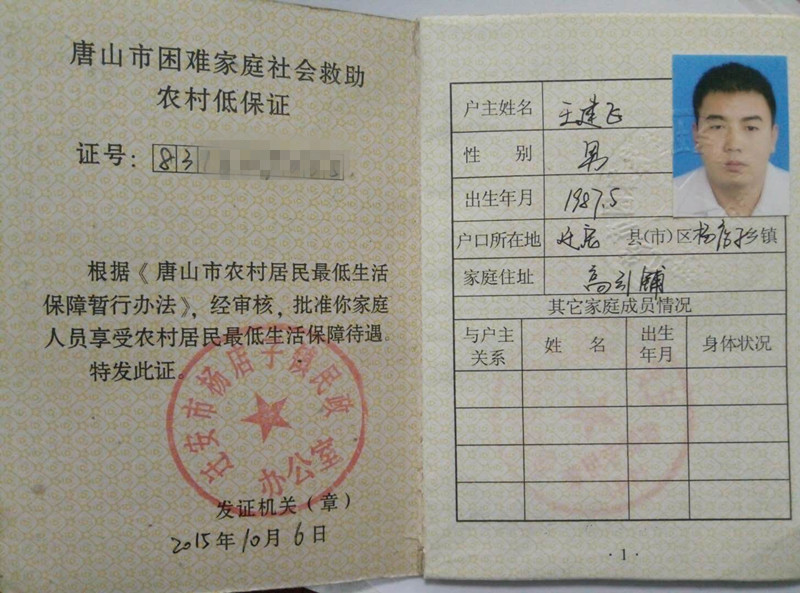 唐山市困难家庭社会救助
农村低保证
证号：83
根据《唐山市农村居民最低生活
保障暂行办法》，经审核，批准你家庭
人员享受农村居民最低生活保障待遇。
特发此证。
迁安市杨店子镇民政
办公室
发证机关（章）
2015年10月6日
户主姓名 王建飞
性 别 男
出生年月 1987.5
户口所在地 迁安 县（市）区杨店子乡镇
家庭住址 高引铺
其它家庭成员情况
与户主关系 姓 名 出生年月 身体状况
·1·